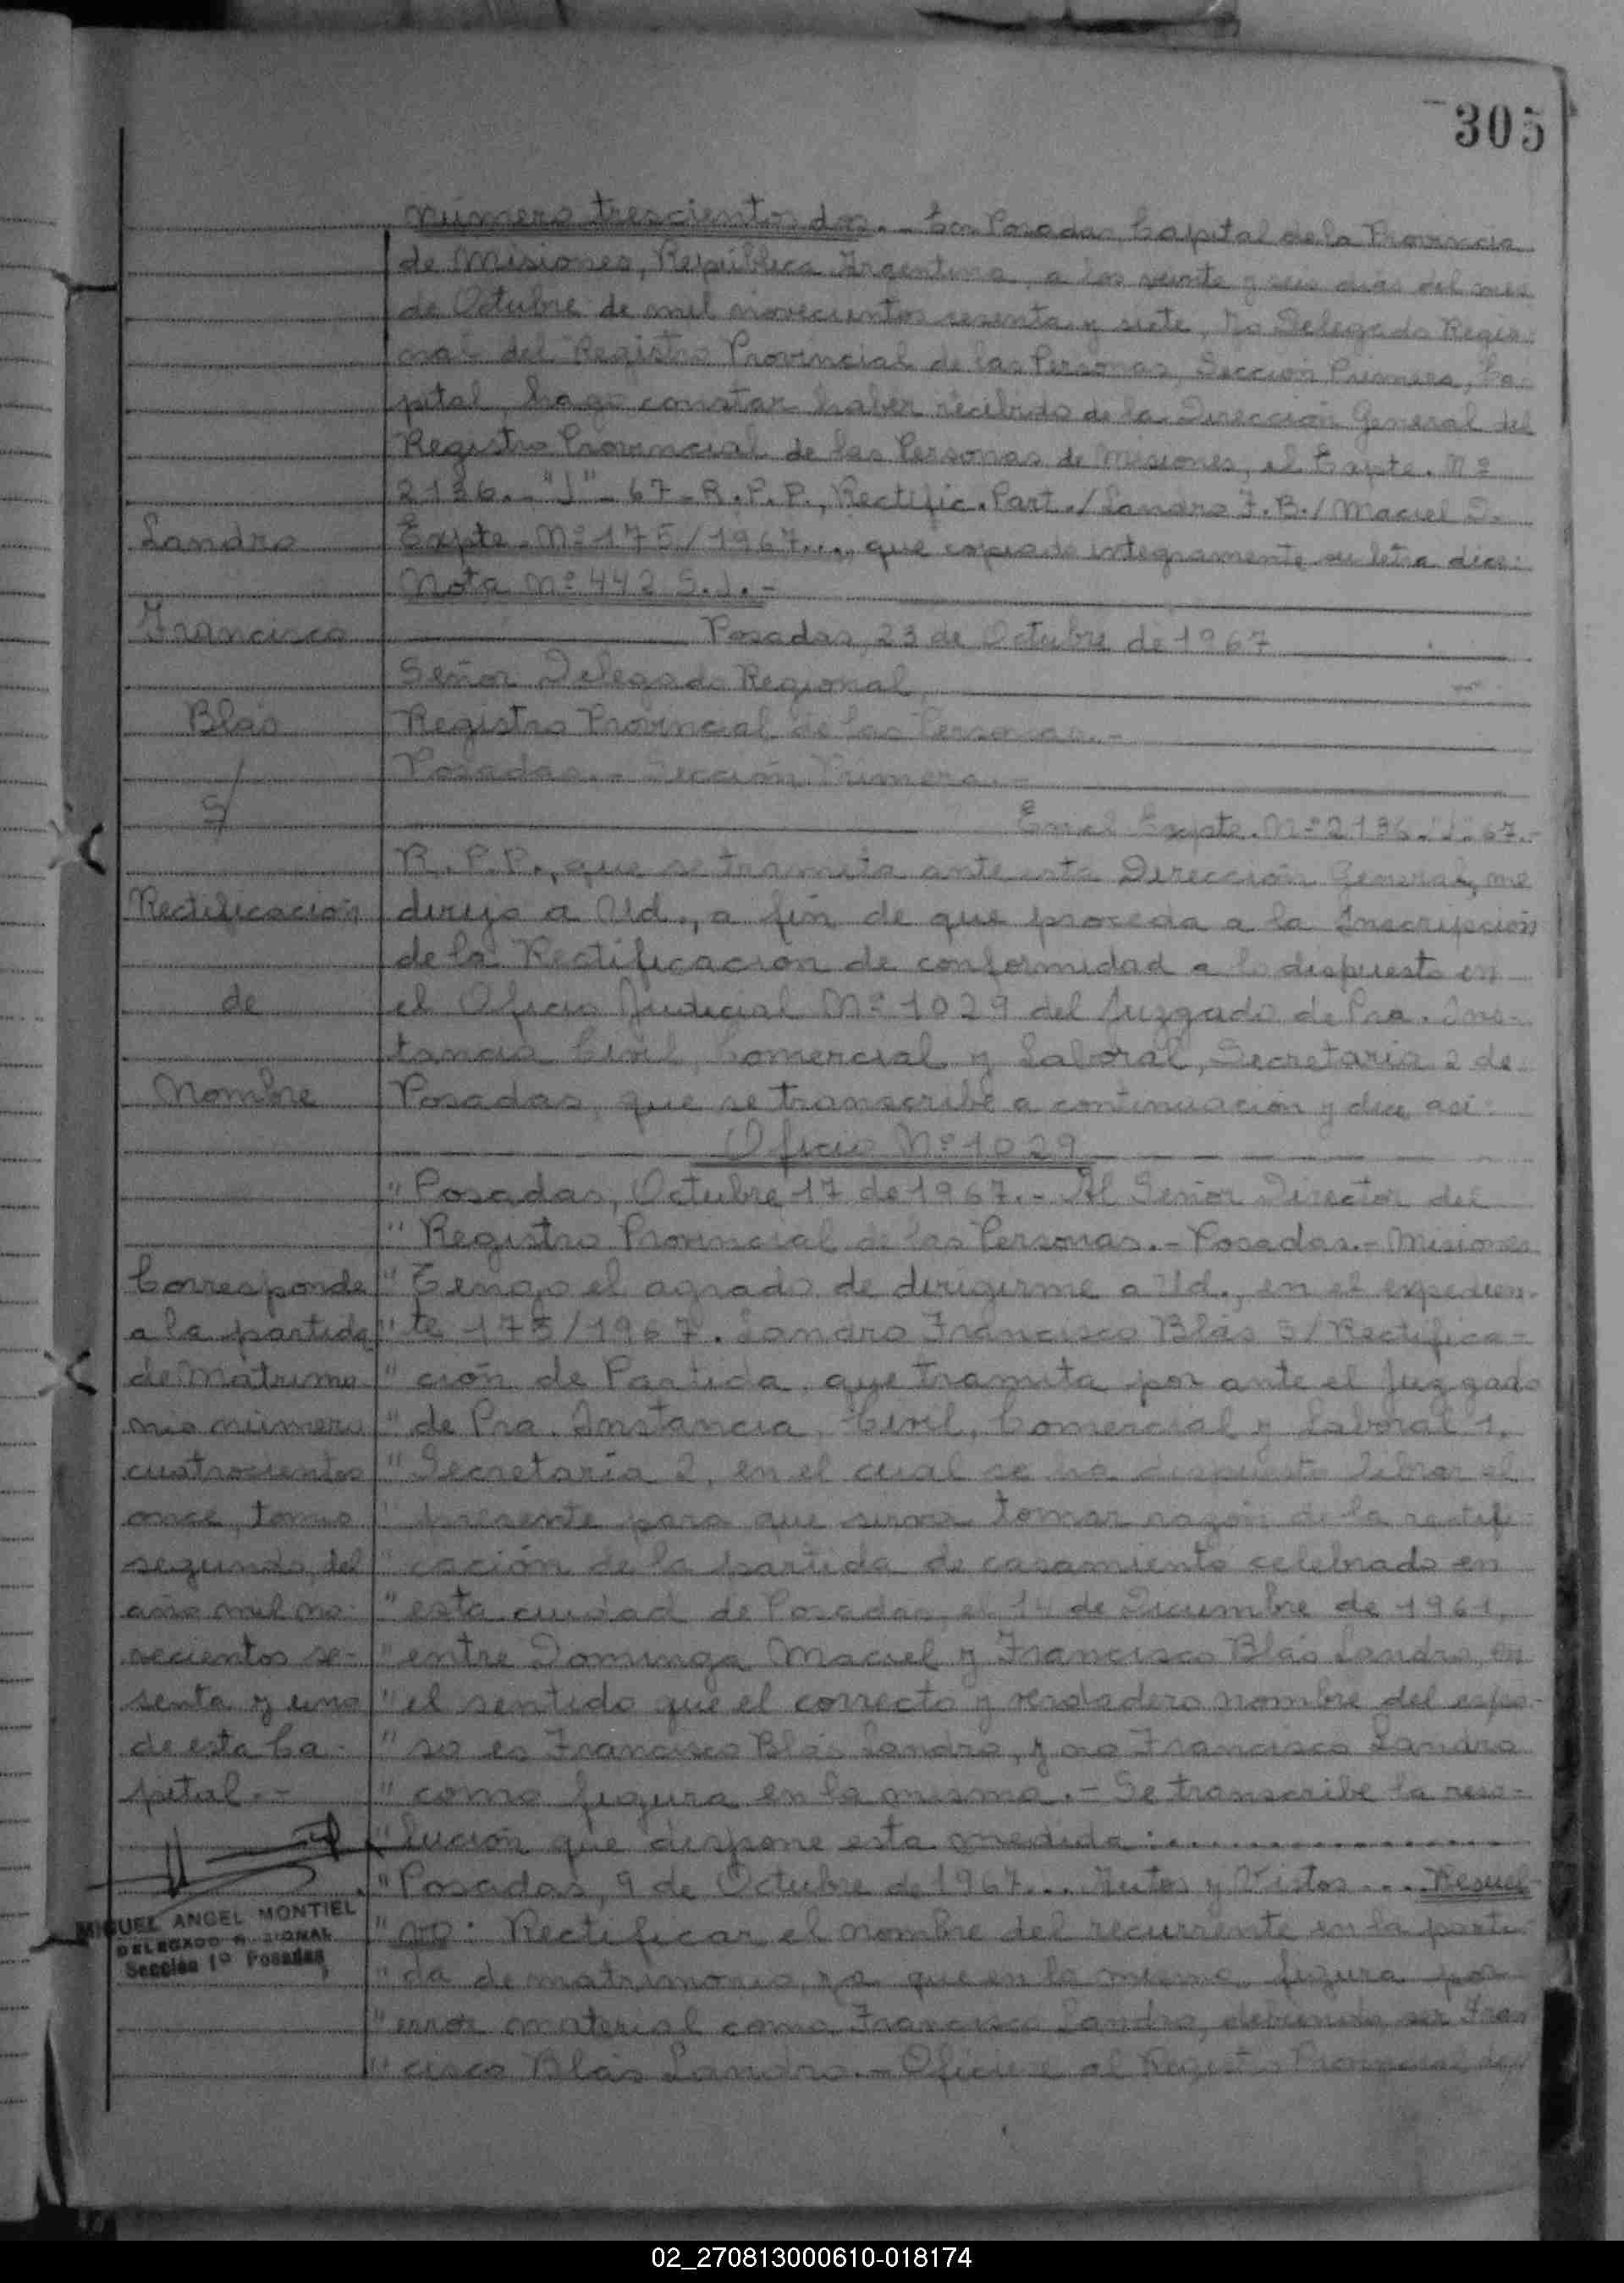 305
Número trescientos dos. - En Posadas Capital de la Provincia
de Misiones, República Argentina, a los veinte y seis días del mes
de Octubre de mil novecientos sesenta y siete, Yo Delegado Regio-
nal del Registro Provincial de las Personas, Sección Primera, Ca-
pital, hago constar haber recibido de la Dirección General del
Registro Provincial de las Personas de Misiones, el Expte. Nº
2136.-"J"-67-R.P.P., Rectific. Part./Landro F.B./Maciel D.
Expte. Nº 175/1967..., que copiado integramente su letra dice:
Nota Nº 442 S.J.-
Posadas, 23 de Octubre de 1967
Señor Delegado Regional
Registro Provincial de las Personas.-
Posadas.- Sección Primera.-
En el Expte. Nº 2136-"J"-67.-
R.P.P., que se tramita ante esta Dirección General, me
dirijo a Ud., a fin de que proceda a la Inscripción
de la Rectificación de conformidad a lo dispuesto en
el Oficio Judicial Nº 1029 del Juzgado de Pra. Ins-
tancia Civil, Comercial y Laboral, Secretaria 2 de
Posadas, que se transcribe a continuación y dice así:
Oficio Nº 1029
" Posadas, Octubre 17 de 1967.- Al Señor Director del
" Registro Provincial de las Personas.- Posadas.- Misiones
" Tengo el agrado de dirigirme a Ud., en el expedien-
" te 175/1967. Landro Francisco Blás S/ Rectifica-
" ción de Partida, que tramita por ante el Juzgado
" de Pra. Instancia, Civil, Comercial y Laboral 1,
" Secretaria 2, en el cual se ha dispuesto librar el
" presente para que sirva tomar razón de la rectifi-
" cación de la partida de casamiento celebrado en
" esta ciudad de Posadas, el 14 de Diciembre de 1961,
" entre Dominga Maciel y Francisco Blás Landro, en
" el sentido que el correcto y verdadero nombre del espo-
" so es Francisco Blás Landro, y no Francisco Landro
" como figura en la misma.- Se transcribe la reso-
" lución que dispone esta medida:
" Posadas, 9 de Octubre de 1967... Autos y Vistos... Resuel-
" vo: Rectificar el nombre del recurrente en la parti-
" da de matrimonio, ya que en la misma figura por
" error material como Francisco Landro, debiendo ser Fran
" cisco Blás Landro.- Ofíciese al Registro Provincial de
Landro
Francisco
Blás
S/
Rectificación
de
Nombre
Corresponde
a la partida
de matrimo
nio número
cuatrocientos
once, tomo
segundo, del
año mil no-
vecientos se-
senta y uno
de esta Ca-
pital.-
MIGUEL ANGEL MONTIEL
DELEGADO REGIONAL
Sección 1º Posadas
02_270813000610-018174